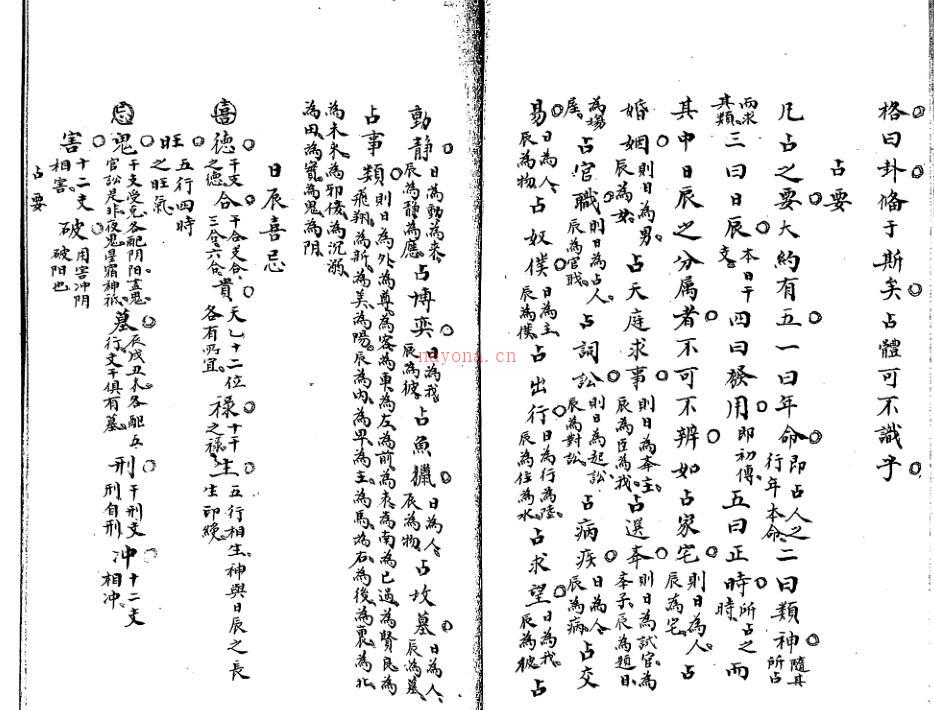 格曰卦俻于斯矣占體可不識乎
占要
凡占之要大約有五一曰年命即占人之行年本命二曰類神隨其所占
而求其類三曰日辰本日干支四曰發用即初傳五曰正時所占之時而
其中日辰之分属者不可不辨如占家宅則日為人辰為宅占
婚姻則日為男辰為女占天庭求事則日為君主辰為臣為我占選奉則日為試官為奉子辰為題目
為場屋占官職則日為占人辰為官職占詞訟則日為起訟辰為對訟占病疾日為人辰為病占交
易日為人辰為物占奴僕日為主辰為僕占出行日為行為陸辰為住為水占求望日為我辰為彼占
動静日為動為来辰為静為應占博奕日為我辰為彼占魚獵日為人辰為物占坟墓日為人辰為墓
占事類則日為外為尊為客為東為左為前為表為南為已過為賢良為飛翔為新為美為陽辰為内為卑為主為馬為右為後為裏為北
為未来為邪佞為沉溺為田為寳為鬼為阴
日辰喜忌
喜德干支之德合干合支合三合六合貴天乙十二位各有所宜禄十干之禄生五行相生神與日辰之長生印綬
旺五行四時之旺氣
忌鬼干支受克各配阴阳盖鬼官訟是非夜鬼星宿神祇墓辰戌丑未各配五行支干俱有墓刑干刑支刑自刑冲十二支相冲
害十二支相害破用害冲阴破阳也
占要
nayona.cn